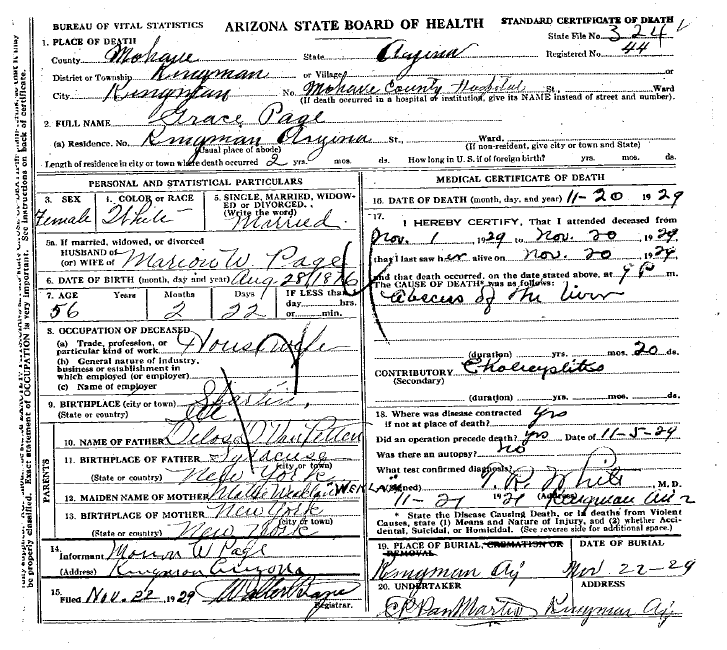 BUREAU OF VITAL STATISTICS ARIZONA STATE BOARD OF HEALTH STANDARD CERTIFICATE OF DEATH
State File No. 324
1. PLACE OF DEATH Registered No. 44
County Mohave State Arizona
District or Township Kingman or Village or
City Kingman No. Mohave County Hospital St., Ward
(If death occurred in a hospital or institution, give its NAME instead of street and number).
2. FULL NAME Grace Page
(a) Residence. No. Kingman Arizona St., Ward.
(Usual place of abode) (If non-resident, give city or town and State)
Length of residence in city or town where death occurred 2 yrs. mos. ds. How long in U. S. if of foreign birth? yrs. mos. ds.
PERSONAL AND STATISTICAL PARTICULARS
3. SEX Female
4. COLOR or RACE White
5. SINGLE, MARRIED, WIDOWED or DIVORCED. (Write the word) Married
5a. If married, widowed, or divorced
HUSBAND of
(or) WIFE of Marion W. Page
6. DATE OF BIRTH (month, day and year) Aug 28/1876
7. AGE Years Months Days IF LESS than
56 2 22 day......hrs.
or......min.
8. OCCUPATION OF DECEASED
(a) Trade, profession, or
particular kind of work Housewife
(b) General nature of industry,
business or establishment in
which employed (or employer)
(c) Name of employer
9. BIRTHPLACE (city or town)
(State or country) Ill.
PARENTS
10. NAME OF FATHER Delos D. Van Petten
11. BIRTHPLACE OF FATHER Syracuse
(city or town)
(State or country) New York
12. MAIDEN NAME OF MOTHER
13. BIRTHPLACE OF MOTHER New York
(city or town)
(State or country) New York
14.
Informant Marion W Page
(Address) Kingman Arizona
15.
Filed Nov. 22, 1929
Registrar.
MEDICAL CERTIFICATE OF DEATH
16. DATE OF DEATH (month, day, and year) 11-20 1929
17.
I HEREBY CERTIFY, That I attended deceased from
Nov. 1 1929 to Nov. 20 1929
that I last saw her alive on Nov. 20 1929
and that death occurred, on the date stated above, at 9 P m.
The CAUSE OF DEATH* was as follows:
Abscess of the liver
(duration) yrs. mos. 20 ds.
CONTRIBUTORY
(Secondary)
(duration) yrs. mos. ds.
18. Where was disease contracted
if not at place of death? yrs
Did an operation precede death? yes Date of 11-5-29
Was there an autopsy? no
What test confirmed diagnosis?
(Signed) R. White M. D.
11-21 1929 (Address) Kingman Ariz
* State the Disease Causing Death, or in deaths from Violent
Causes, state (1) Means and Nature of Injury, and (2) whether Accidental,
Suicidal, or Homicidal. (See reverse side for additional space.)
19. PLACE OF BURIAL, CREMATION OR REMOVAL DATE OF BURIAL
Kingman Az Nov 22-29
20. UNDERTAKER ADDRESS
Van Marter Kingman Az
be properly classified. Exact statement of OCCUPATION is very important. See instructions on back of certificate.